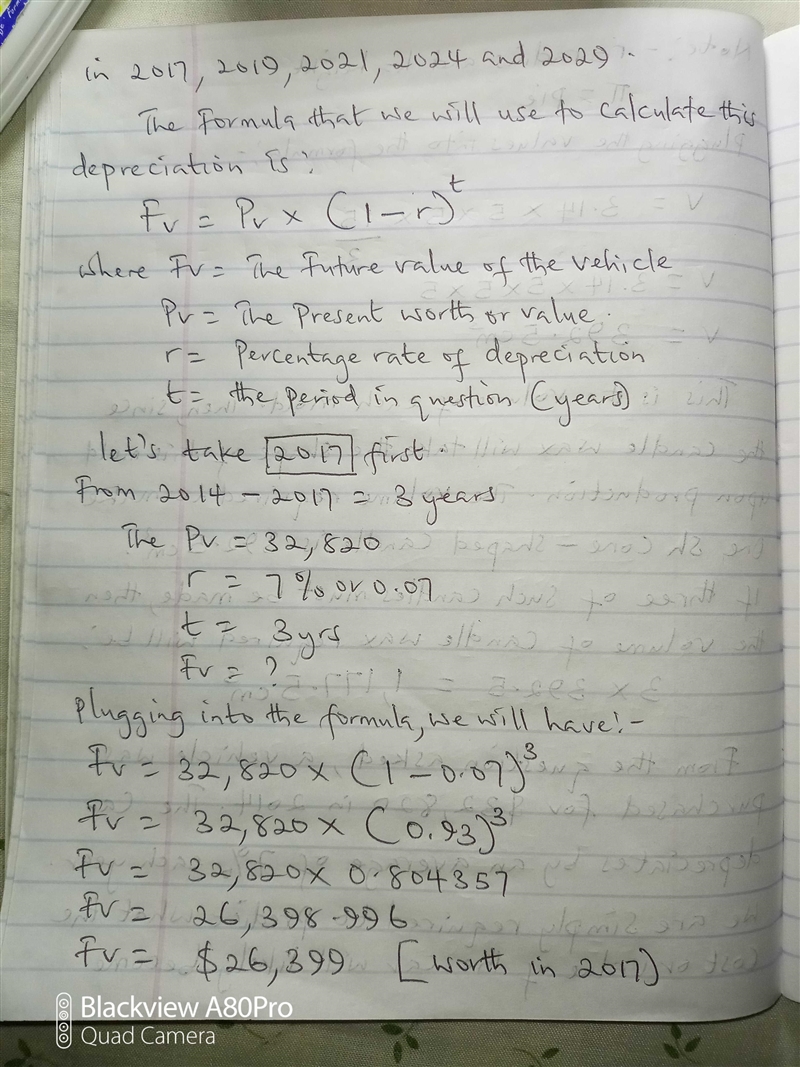 in 2017, 2019, 2021, 2024 and 2029.
The Formula that we will use to calculate this
depreciation is:
Fv = Pv x (1-r)^t
where Fv = The Future value of the vehicle
Pv = The Present worth or value.
r = Percentage rate of depreciation
t = the period in question (years)
let's take 2017 first.
From 2014 - 2017 = 3 years
The Pv = 32,820
r = 7% or 0.07
t = 3yrs
Fv = ?
Plugging into the formula, we will have:-
Fv = 32,820 x (1-0.07)^3
Fv = 32,820 x (0.93)^3
Fv = 32,820 x 0.804357
Fv = 26,398.996
Fv = $26,399 [worth in 2017)
Blackview A80Pro
Quad Camera